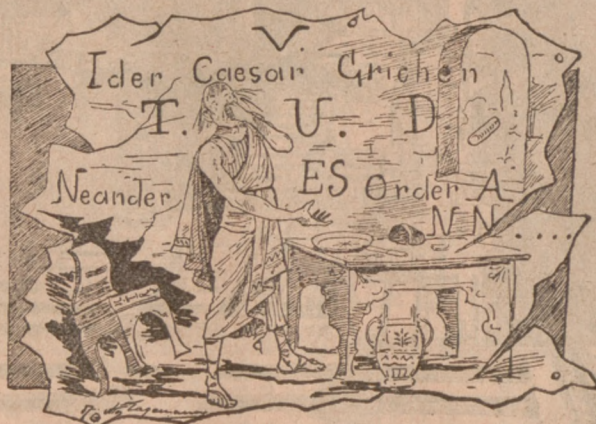 V.
Ider Caesar Grichen
T. U. D I
Neander ES Order A
N N....